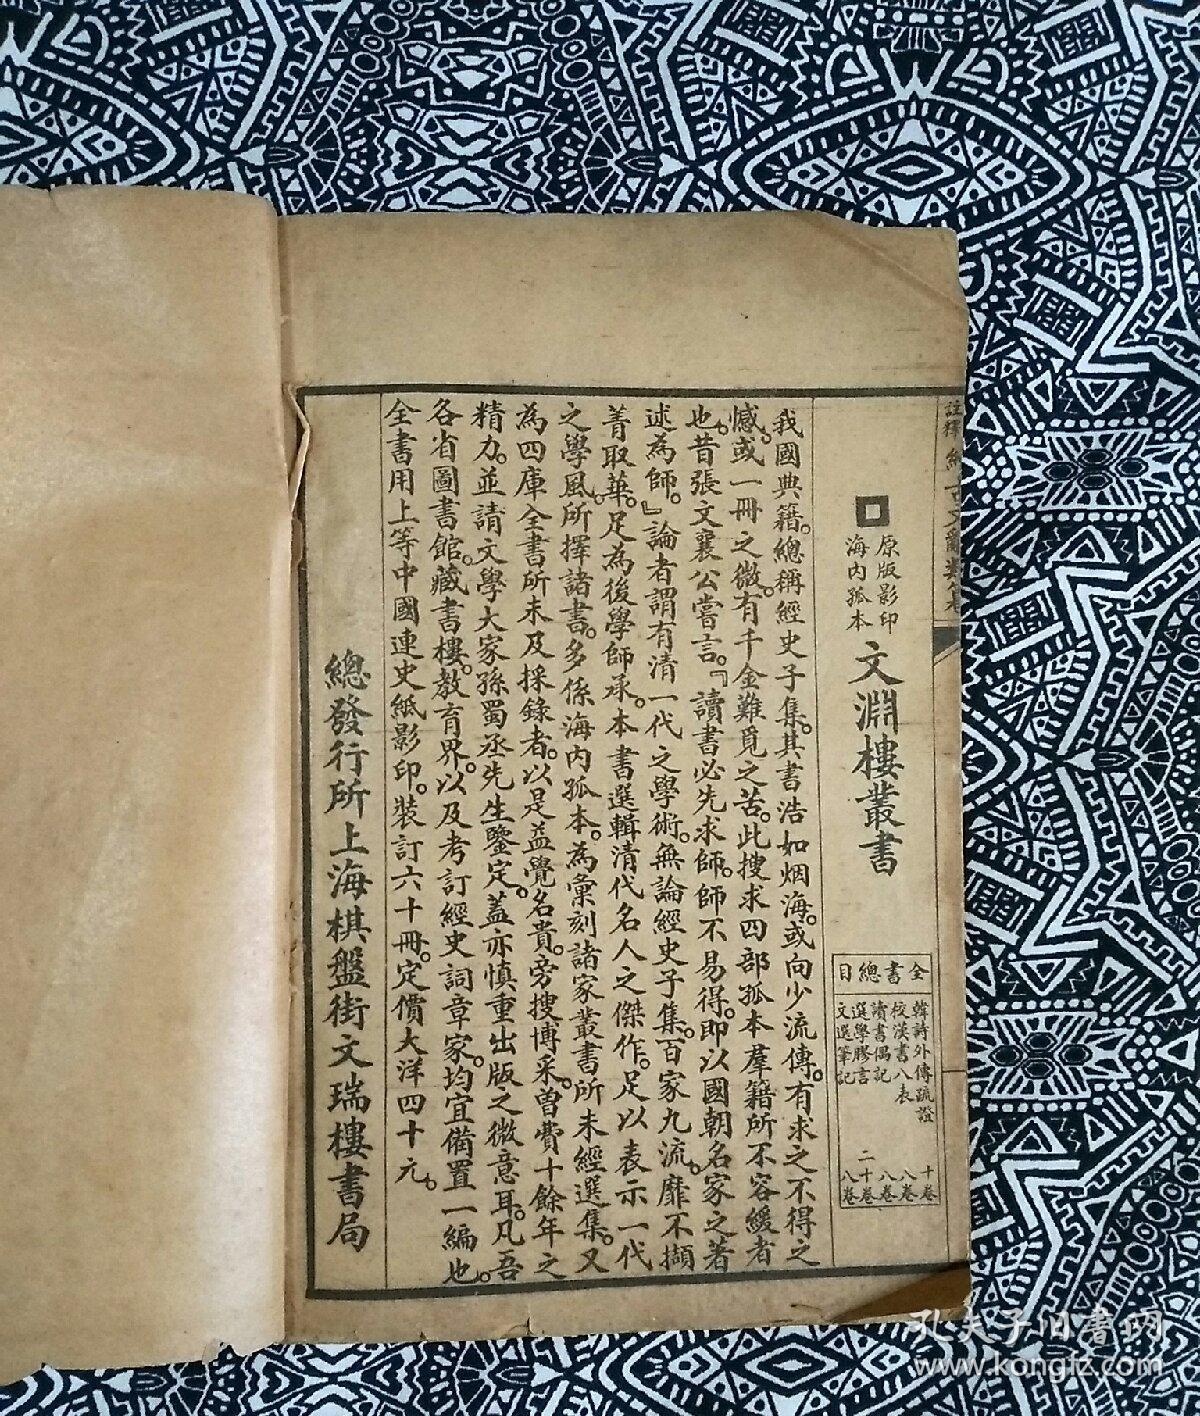 原版影印
海内孤本
文淵樓叢書
全書總目
韓詩外傳疏證 十卷
校漢書八表 八卷
讀書偶記 八卷
選學膠言 二十卷
文選筆記 八卷
我國典籍。總稱經史子集。其書浩如烟海。或向少流傳。有求之不得之
憾。或一冊之微。有千金難覓之苦。此搜求四部孤本羣籍所不容緩者
也。昔張文襄公嘗言。『讀書必先求師。師不易得。即以國朝名家之著
述為師。』論者謂有清一代之學術。無論經史子集。百家九流。靡不擷
菁取華。足為後學師承。本書選輯清代名人之傑作。足以表示一代
之學風。所擇諸書。多係海内孤本。為彙刻諸家叢書所未經選集。又
為四庫全書所未及採錄者。以是益覺名貴。旁搜博采。曾費十餘年之
精力。並請文學大家孫蜀丞先生鑒定。蓋亦慎重出版之微意耳。凡吾
各省圖書館。藏書樓。教育界。以及考訂經史詞章家。均宜備置一編也。
全書用上等中國連史紙影印。裝訂六十冊。定價大洋四十元。
總發行所上海棋盤街文瑞樓書局
孔夫子旧书网
www.kongfz.com